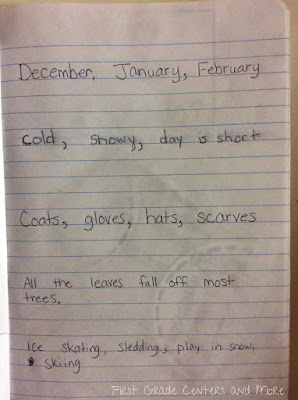 December, January, February
cold, snowy, day is short
Coats, gloves, hats, scarves
All the leaves fall off most
trees.
Ice skating, sledding, play in snow,
skiing
First Grade Centers and More